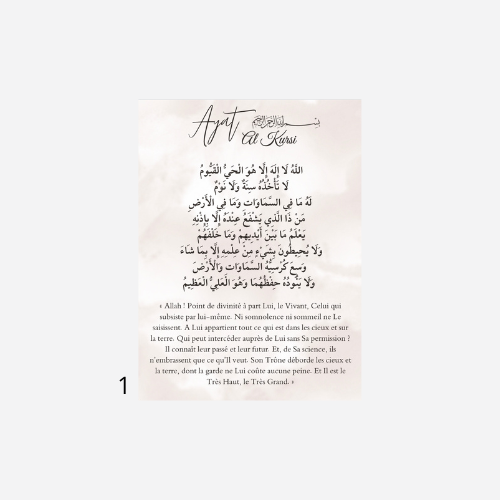 Ayat
بسم الله الرحمن الرحيم
Al Kursi
اللَّهُ لَا إِلَهَ إِلَّا هُوَ الْحَيُّ الْقَيُّومُ
لَا تَأْخُذُهُ سِنَةٌ وَلَا نَوْمٌ
لَهُ مَا فِي السَّمَاوَاتِ وَمَا فِي الْأَرْضِ
مَنْ ذَا الَّذِي يَشْفَعُ عِنْدَهُ إِلَّا بِإِذْنِهِ
يَعْلَمُ مَا بَيْنَ أَيْدِيهِمْ وَمَا خَلْفَهُمْ
وَلَا يُحِيطُونَ بِشَيْءٍ مِنْ عِلْمِهِ إِلَّا بِمَا شَاءَ
وَسِعَ كُرْسِيُّهُ السَّمَاوَاتِ وَالْأَرْضَ
وَلَا يَئُودُهُ حِفْظُهُمَا وَهُوَ الْعَلِيُّ الْعَظِيمُ
« Allah ! Point de divinité à part Lui, le Vivant, Celui qui
subsiste par lui-même. Ni somnolence ni sommeil ne Le
saisissent. A Lui appartient tout ce qui est dans les cieux et sur
la terre. Qui peut intercéder auprès de Lui sans Sa permission ?
Il connaît leur passé et leur futur. Et, de Sa science, ils
n'embrassent que ce qu'Il veut. Son Trône déborde les cieux et
la terre, dont la garde ne Lui coûte aucune peine. Et Il est le
Très Haut, le Très Grand. »
1